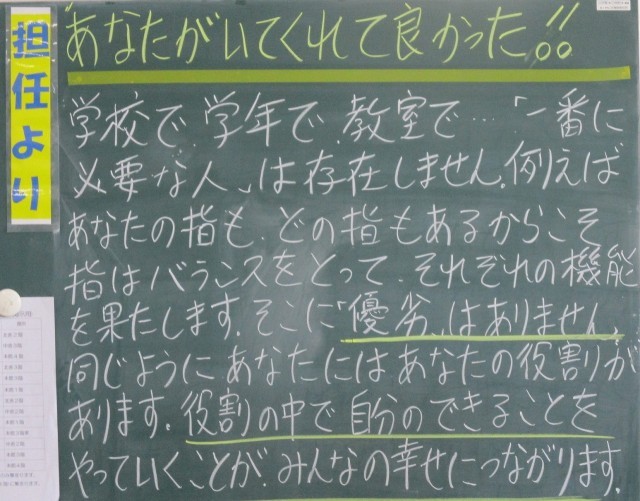 担任より
あなたがいてくれて良かった!!
学校で、学年で、教室で…「一番に
必要な人」は存在しません。例えば
あなたの指も、どの指もあるからこそ
指はバランスをとって、それぞれの機能
を果たします。そこに「優劣」はありません。
同じようにあなたにはあなたの役割が
あります。役割の中で自分のできることを
やっていくことが、みんなの幸せにつながります。